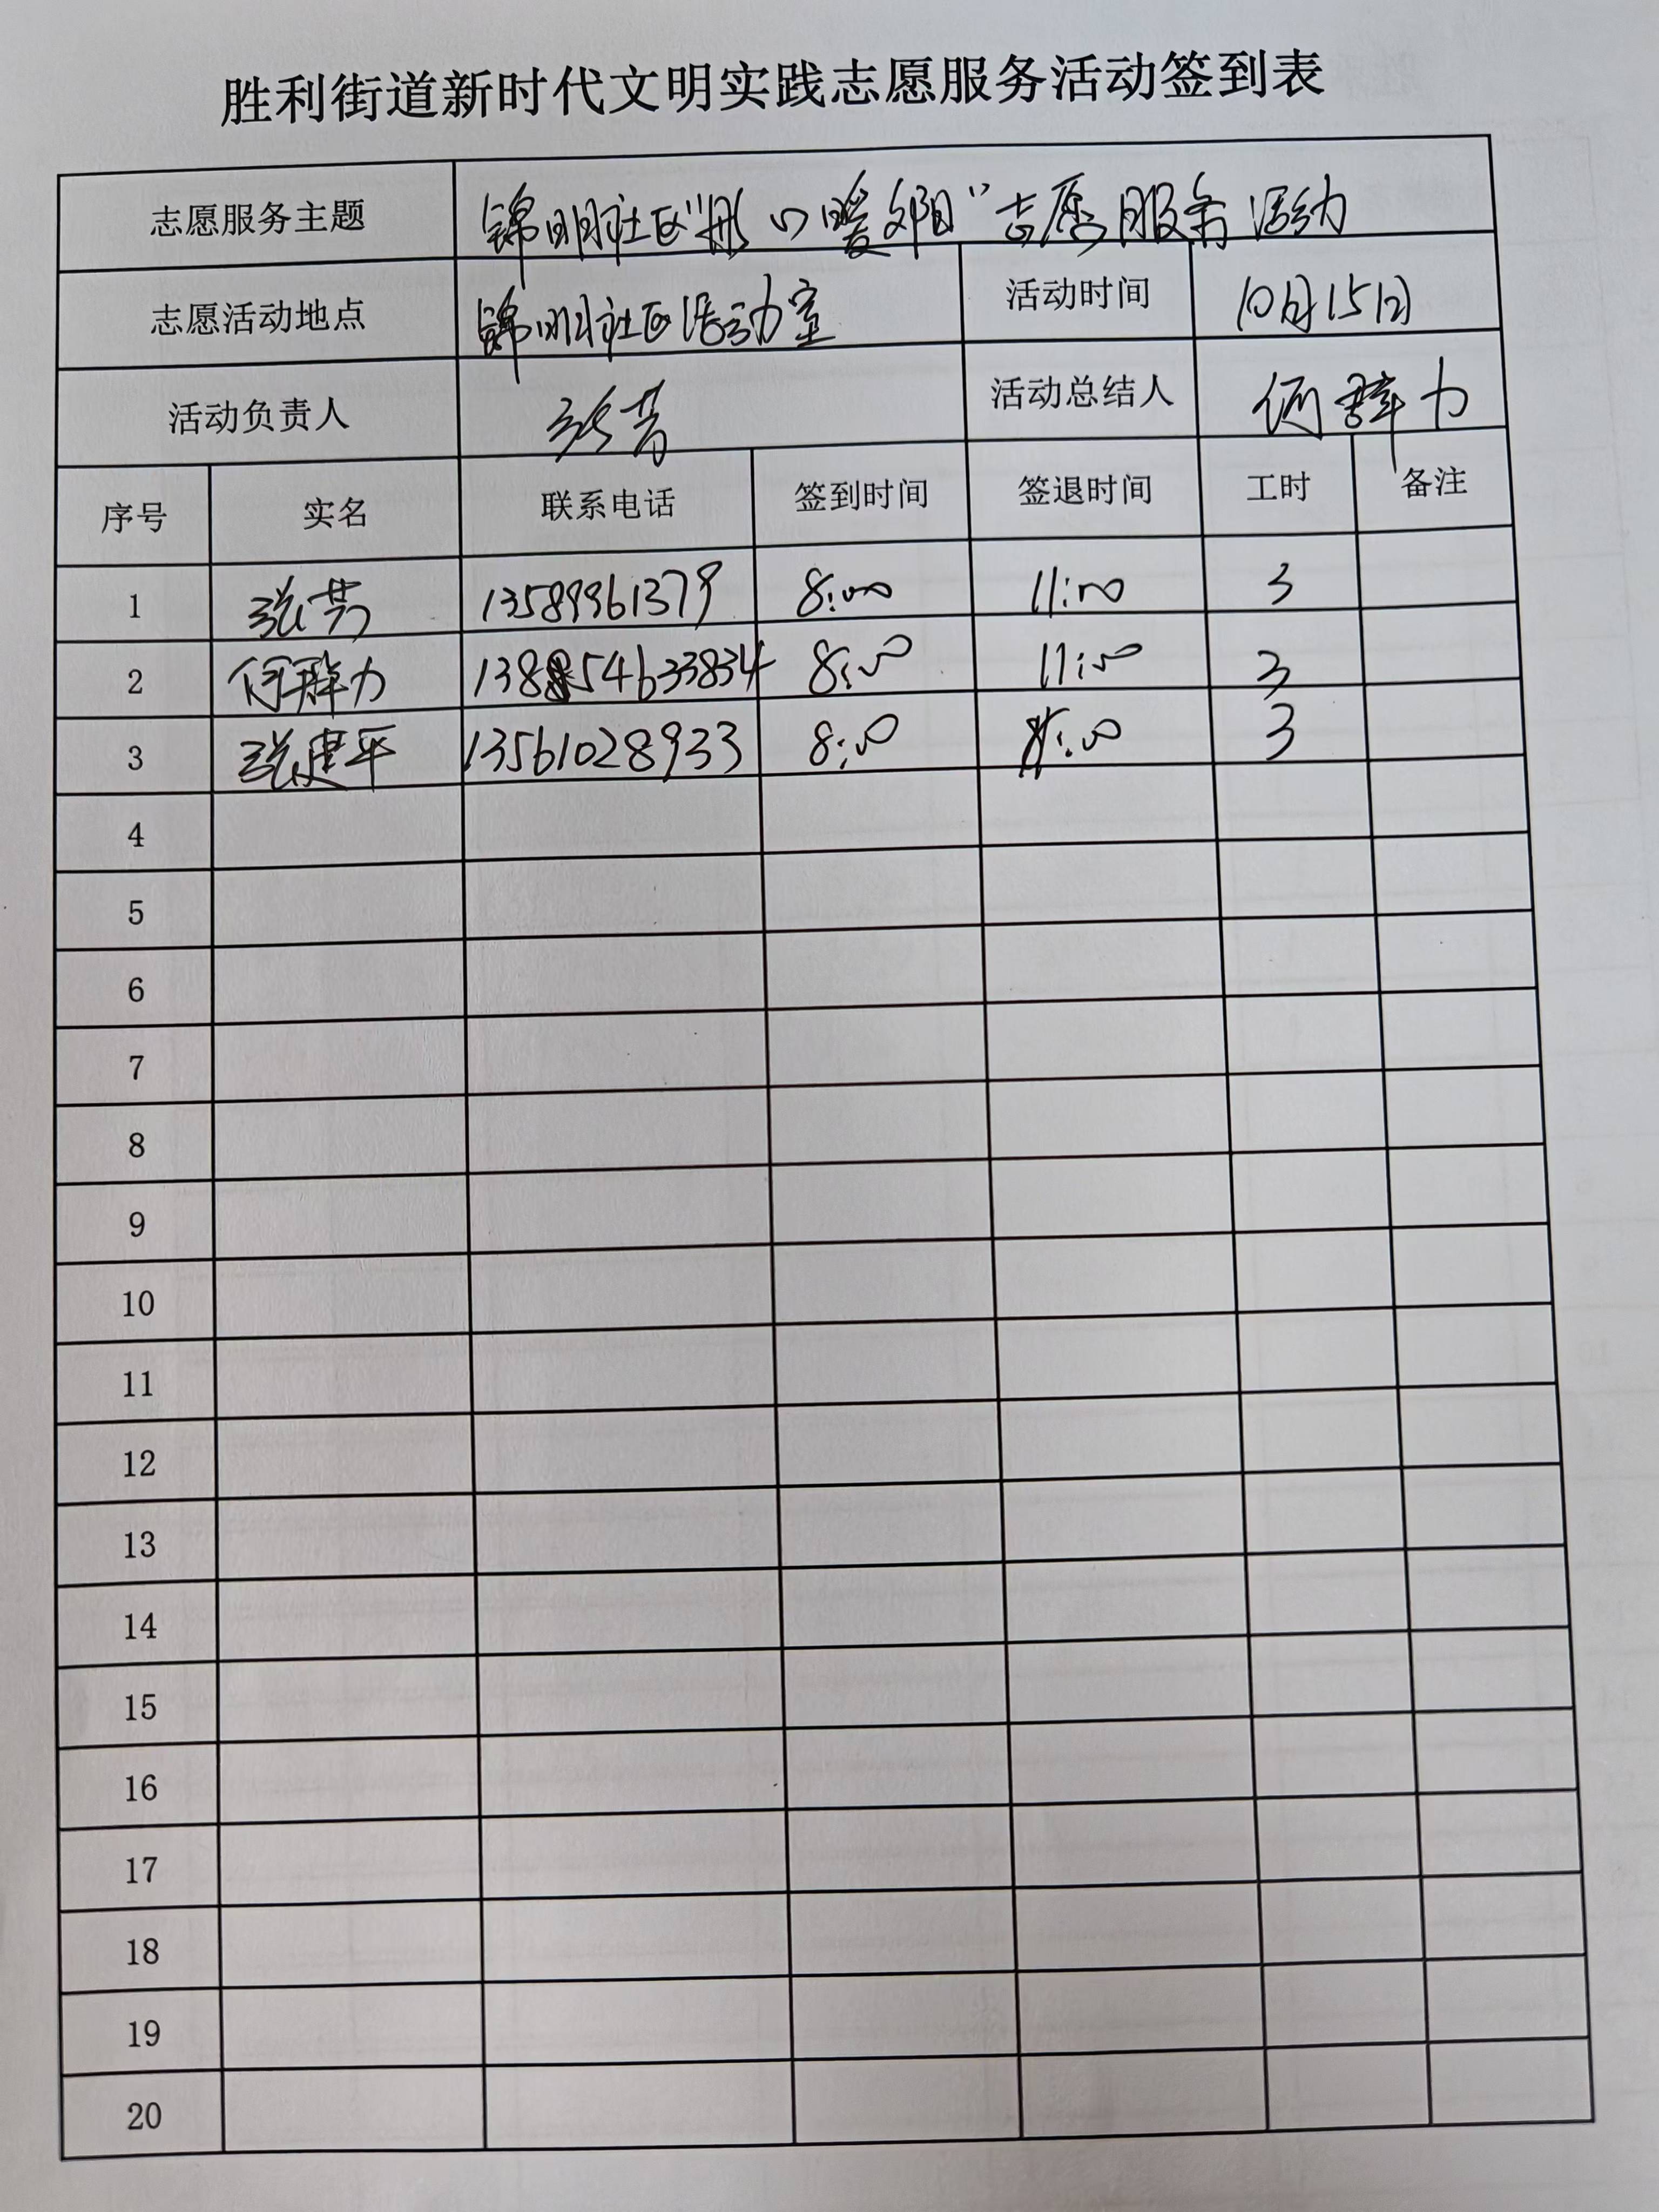 胜利街道新时代文明实践志愿服务活动签到表
志愿服务主题 锦明社区"彤心暖夕阳"志愿服务活动
志愿活动地点 锦明社区活动室 活动时间 10月15日
活动负责人 张芳 活动总结人 何群力
序号 实名 联系电话 签到时间 签退时间 工时 备注
1 张芳 13589961379 8:00 11:00 3
2 何群力 8:00 11:00 3
3 张建平 13561028933 8:00 11:00 3
4
5
6
7
8
9
10
11
12
13
14
15
16
17
18
19
20